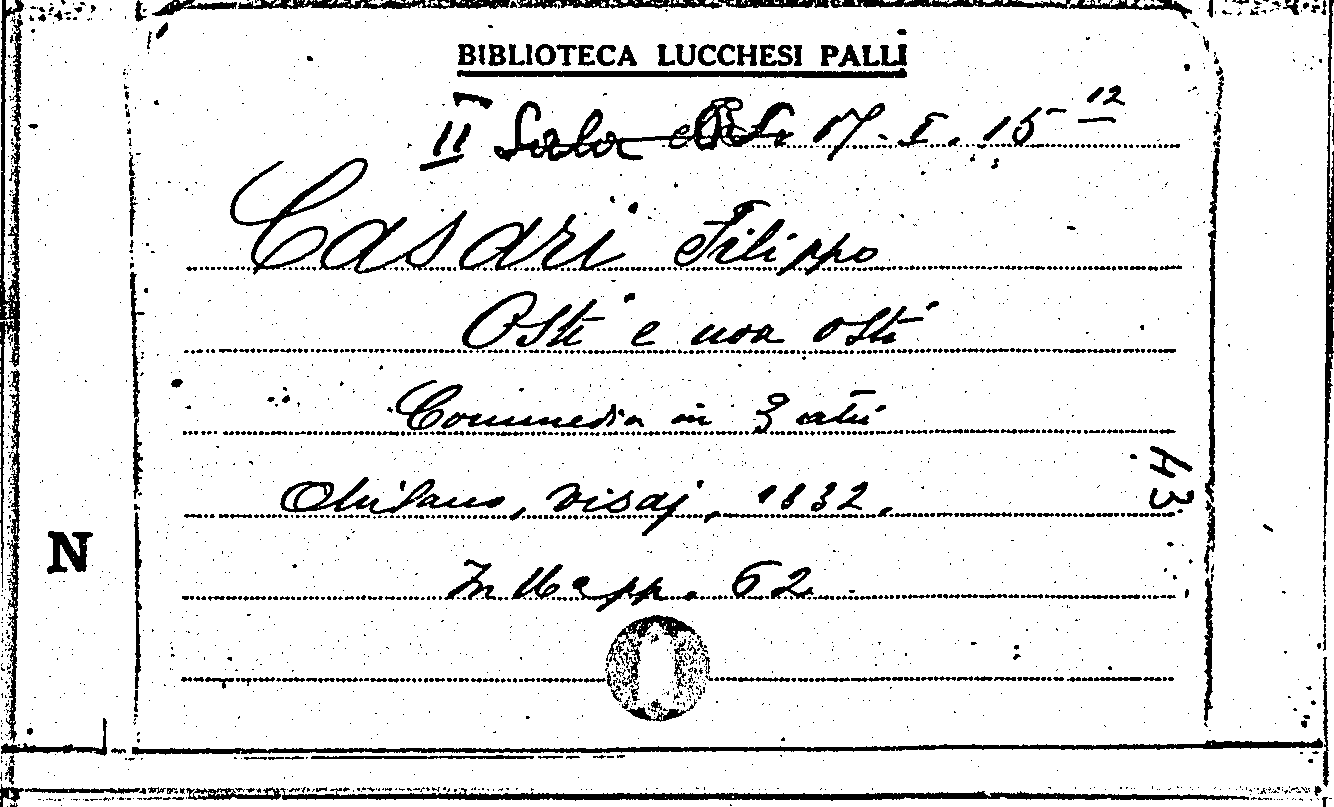 BIBLIOTECA LUCCHESI PALLI
II Sala 17. I. 15 12
Casari Filippo
Osti e non osti
Commedia in 3 atti
Milano, Visaj, 1832.
In 16° pp. 62.
43
N